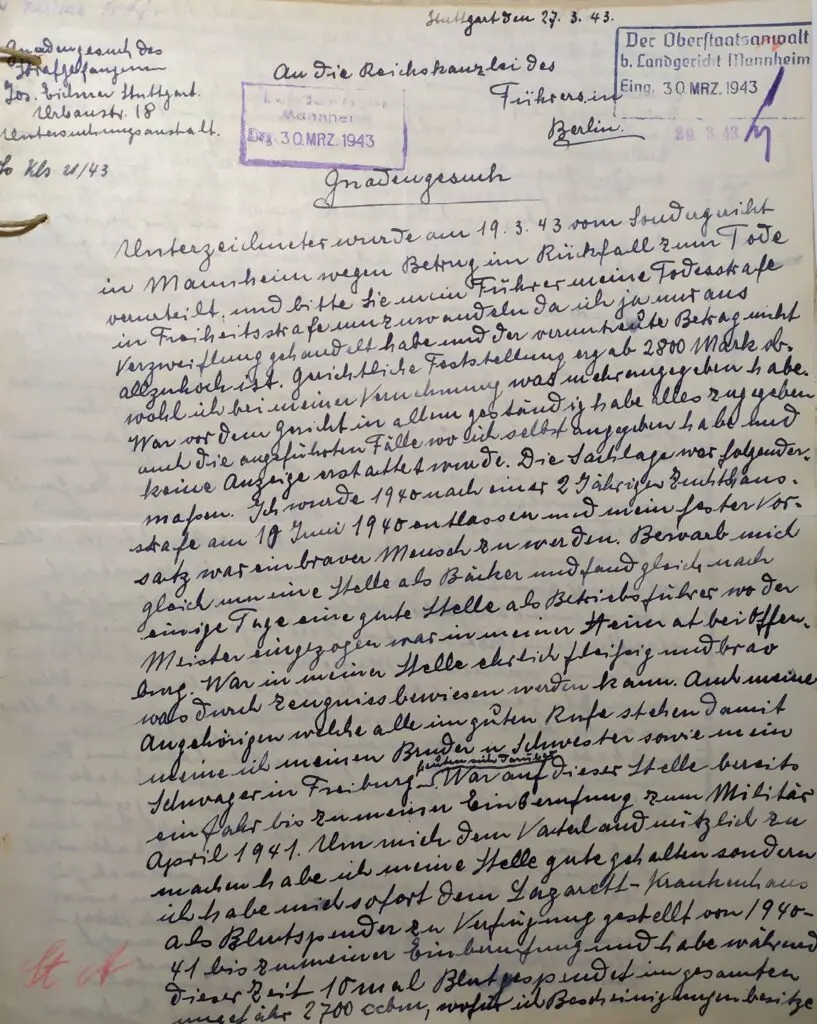 Stuttgart den 27. 3. 43.
Gnadengesuch des
Strafgefangenen
Jos. Eidmer Stuttgart.
Urbanstr. 18
Untersuchungsanstalt.
So Kls 21/43
An die Reichskanzlei des
Führers in
Berlin.
Der Oberstaatsanwalt
b. Landgericht Mannheim
Eing. 30 MRZ. 1943
Mannheim
Eing. 30 MRZ. 1943
29. 3. 43
Gnadengesuch
Unterzeichneter wurde am 19. 3. 43 vom Sondergericht
in Mannheim wegen Betrug im Rückfall zum Tode
verurteilt, und bitte Sie mein Führer meine Todesstrafe
in Freiheitsstrafe umzuwandeln da ich ja nur aus
Verzweiflung gehandelt habe und der veruntreute Betrag nicht
allzuhoch ist. Gerichtliche Feststellung ergab 2800 Mark ob-
wohl ich bei meiner Vernehmung was mehr angegeben habe.
War vor dem Gericht in allem geständig habe alles zugegeben
auch die angeführten Fälle wo ich selbst angegeben habe und
keine Anzeige erstattet wurde. Die Sachlage war folgender-
maßen. Ich wurde 1940 nach einer 2 Jährigen Zuchthaus-
strafe am 10 Juni 1940 entlassen und mein fester Vor-
satz war ein braver Mensch zu werden. Bewarb mich
gleich um eine Stelle als Bäcker und fand gleich nach
einige Tage eine gute Stelle als Betriebsführer wo der
Meister eingezogen war in meiner Heimat bei Offen-
burg. War in meiner Stelle ehrlich fleißig und brav
was durch Zeugniss bewiesen werden kann. Auch meine
Angehörigen welche alle im guten Rufe stehen damit
meine ich meinen Bruder u Schwester sowie mein
Schwager in Freiburg freuten sich darüber. War auf dieser Stelle bereits
ein Jahr bis zu meiner Einberufung zum Militär
April 1941. Um mich dem Vaterland nützlich zu
machen habe ich meine Stelle gute gehalten sondern
ich habe mich sofort dem Lazarett-Krankenhaus
als Blutspender zu Verfügung gestellt von 1940-
41 bis zu meiner Einberufung und habe während
dieser Zeit 10 mal Blut gespendet im gesamten
ungefähr 2700 ccbm, wofür ich Bescheinigungen besitze